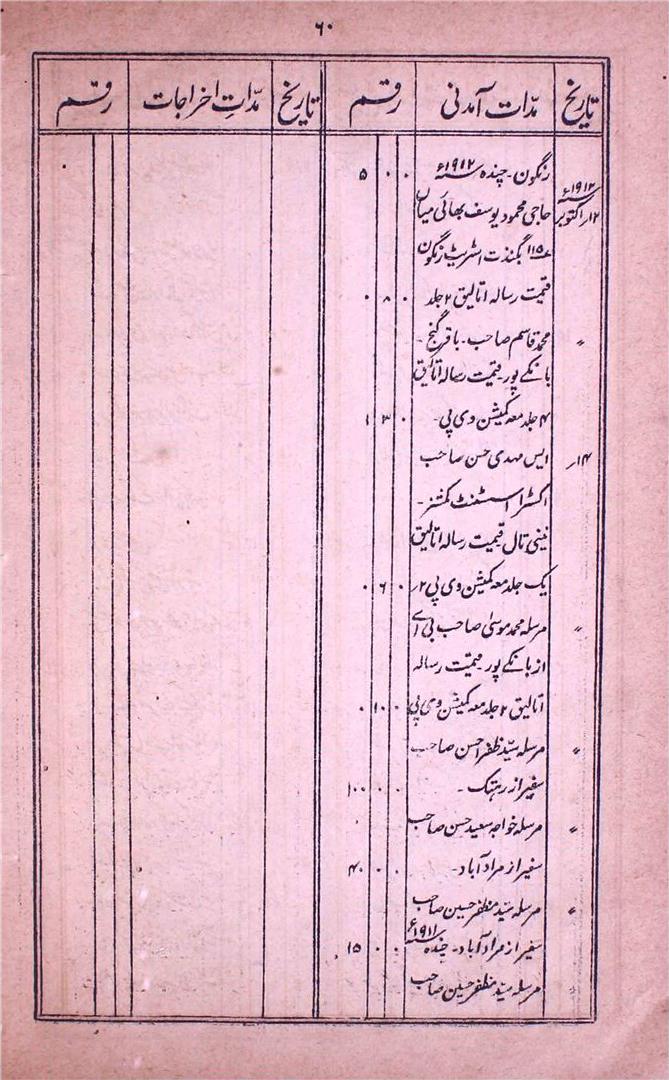 ۶۰
تاریخ مدّات آمدنی رقم تاریخ مدّاتِ اخراجات رقم
رنگون۔ چندہ ۱۹۱۲ء ۵ ۰ ۰
۱۹۱۲ء
۱۲ اکتوبر حاجی محمود یوسف بھائی میاں
۱۱۵ اسٹریٹ رنگون
قیمت رسالہ اتالیق ۲ جلد ۰ ۸ ۰
〃 محمد قاسم صاحب۔ باقر گنج۔
بانکے پور۔ قیمت رسالہ اتالیق
۴ جلد معہ کمیشن وی پی۔ ۱ ۳ ۰
۱۴ر ایس مہدی حسن صاحب
اکسٹرا اسسٹنٹ کمشنر۔
نینی تال قیمت رسالہ اتالیق
یک جلد معہ کمیشن وی پی ۲ر ۰ ۶ ۰
〃 مرسلہ محمد موسیٰ صاحب بی اے
از بانکے پور۔ قیمت رسالہ
اتالیق ۲ جلد معہ کمیشن وی پی ۰ ۱۰ ۰
〃 مرسلہ سیّد ظفر احسن صاحب
سفیر از رہتک۔ ۱۰۰ ۰ ۰
〃 مرسلہ خواجہ سعید حسن صاحب
سفیر از مراد آباد۔ ۴۰ ۰ ۰
〃 مرسلہ سیّد مظفر حسین صاحب
سفیر از مراد آباد۔ چندہ ۱۹۱۱ء ۱۵ ۰ ۰
مرسلہ سیّد مظفر حسین صاحب